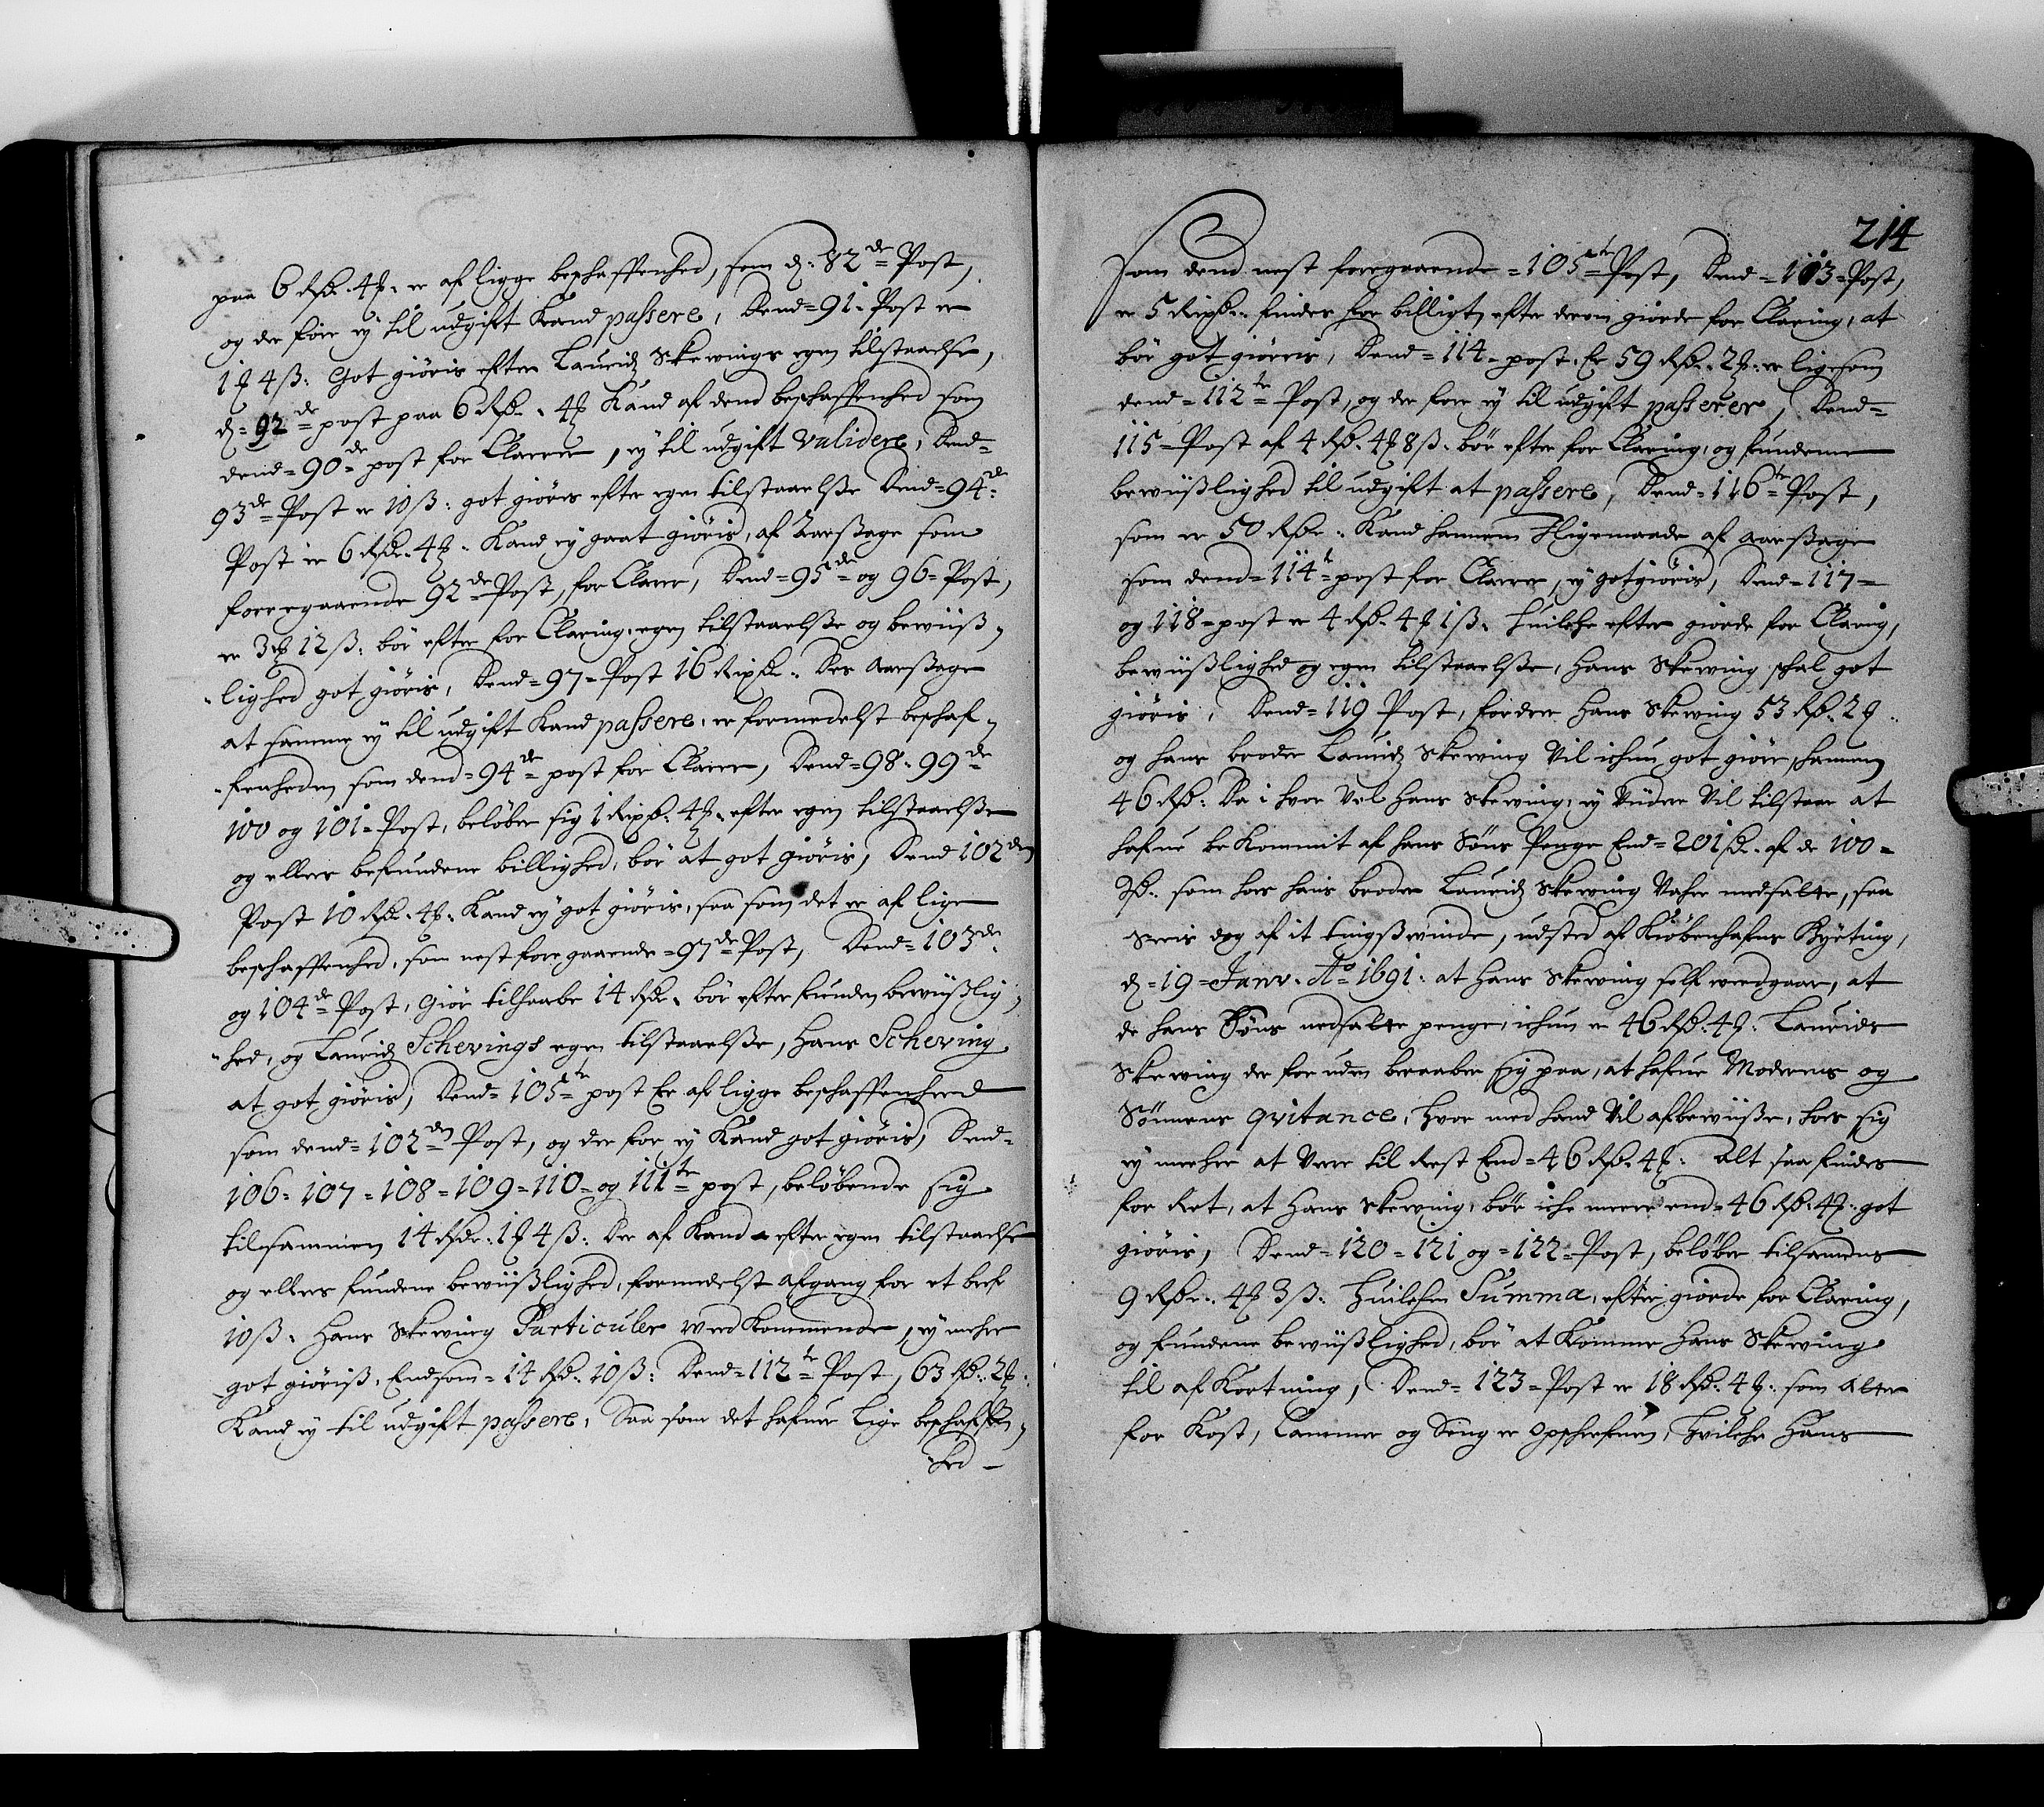 paa 6 Rdr. 4 ß. er af ligge beschaffenhed, som d: 82de Post,
og der före ey til udgift Kand passere, Dend=91. Post er
1 ß 4 ß: Got giöris efter Lauridz Skevings egen tilstaaelse,
d=92de post paa 6 Rdr. 4 ß Kand af dend beschaffenhed som
dend=90de post for Clarer, ey til udgift validere, Dend=
93de Post er 10 ß: got giöres efter egen tilstaaelsse Dend=94de
Post er 6 Rdr. 4 ß. Kand ey gaat giöris, af Aarßage som
foregaaende 92de Post, for Clarer, Dend=95de og 96=Post,
er 3 ß 12 ß: bör efter for Claring, egen tilstaaelsse og beviiß,
lighed got giöris, Dend=97=Post 16 Rixdr. Der Aarßage
at samme ey til udgift Kand passere, er formedelst beschaf,
fenheden som dend=94de post for Clarer, Dend=98. 99de
100 og 101=Post, belöber sig 1 Rixdr. 4 ß. efter egen tilstaaelsse
og ellers befundene billighed, bör at got giöris, Dend 102den
Post 10 Rdr. 4 ß. Kand ey got giöris, saa som det er af lige
beschaffenhed, som nest foregaaende=97de Post, Dend=103de
og 104de Post, Giör tilhaabe 14 Rdr. bör efter funden beviißlig,
hed, og Lauridz Schevings egen tilstaaelsse, Hans Scheving
at got giöris, Dend=105te post Er af ligge beschaffenheed
som dend=102den Post, og der for ey Kand got giöris, Dend=
106=107=108=109=110=og 111te post, belöbende sig
tilsammen 14 Rdr. 1 ß 4 ß: Der af Kand efter egen tilstaaelse
og ellers fundene beviißlighed, formedelst afgang for et bref
10 ß. Hans Skeving Particuler vedkommende, ey meher
got giöriß, End som=14 Rd. 10 ß: Dend=112te Post, 63 Rd. 2 ß.
Kand ey til udgift passere, Saa som det hafuer lige beschaffen,
hed
214
Som dend nest foregaaende=105te Post, Dend=113=Post,
er 5 Rixdr. findes for billigt efter derom giorde for Claring, at
bör got giöris, Dend=114=post. Er 59 Rdr. 2 ß. er ligesom
dend=112te Post, og der fore ey til udgift passerer, Dend=
115=Post af 4 Rd. 4 ß 8 ß. bör efter for Claring, og fundene
beviißlighed til udgift at passere, Dend=116te Post,
som er 50 Rdr. Kand hannem Iligemaade af Aarßage
som dend=114te post for Clarer, ey gotgiöris, Dend=117=
og 118=post er 4 Rd. 4 ß 1 ß. Huilche efter giorde for Claring,
beviißlighed og egen tilstaaelsse, Hans Skeving schal got
giöris, Dend=119 Post, fordrer Hans Skeving 53 Rd. 2 ß.
og hans broder Lauridz Skeving Vil ichun got giöre, hannem
46 Rd: Da i hvor Vel Hans Skeving, ey Videre Vil tilstaae at
hafue bekommit af hans Söns Penge End=20 af de 100=
Rd. som hos hans broder Lauridz Skeving Vaher nedsatte, saa
Seeis dog af it tingßvinde, udsted af Kiöbenhafns Byeting,
d=19=Janv. Ao 1691: at Hans Skeving self vedgaar, at
de hans Söns nedsatte penge, ichun er 46 Rd. 4 ß: Laurids
Skeving der foruden beraaber sig paa, at hafue Moderens og
Sönnens qvitance, hvor med hand Vil afbeviiße, hos sig
ey meeher at Vere til Rest End=46 Rd. 4 ß: Alt saa findes
for Ret, at Hans Skeving, bör iche meere end=46 Rd. 4 ß. got
giöris, Dend=120=121 og=122=Post, belöber tilsamens
9 Rdr. 4 ß 3 ß. Huilchen Summa, efter giorde for Claring,
og fundene beviißlighed, bör at Komme Hans Skeving
til af Kortning, Dend=123=Post er 18 Rd. 4 ß: som Alter
for Kost, Cammer og Seng er opschrefuen, Huilche Hans